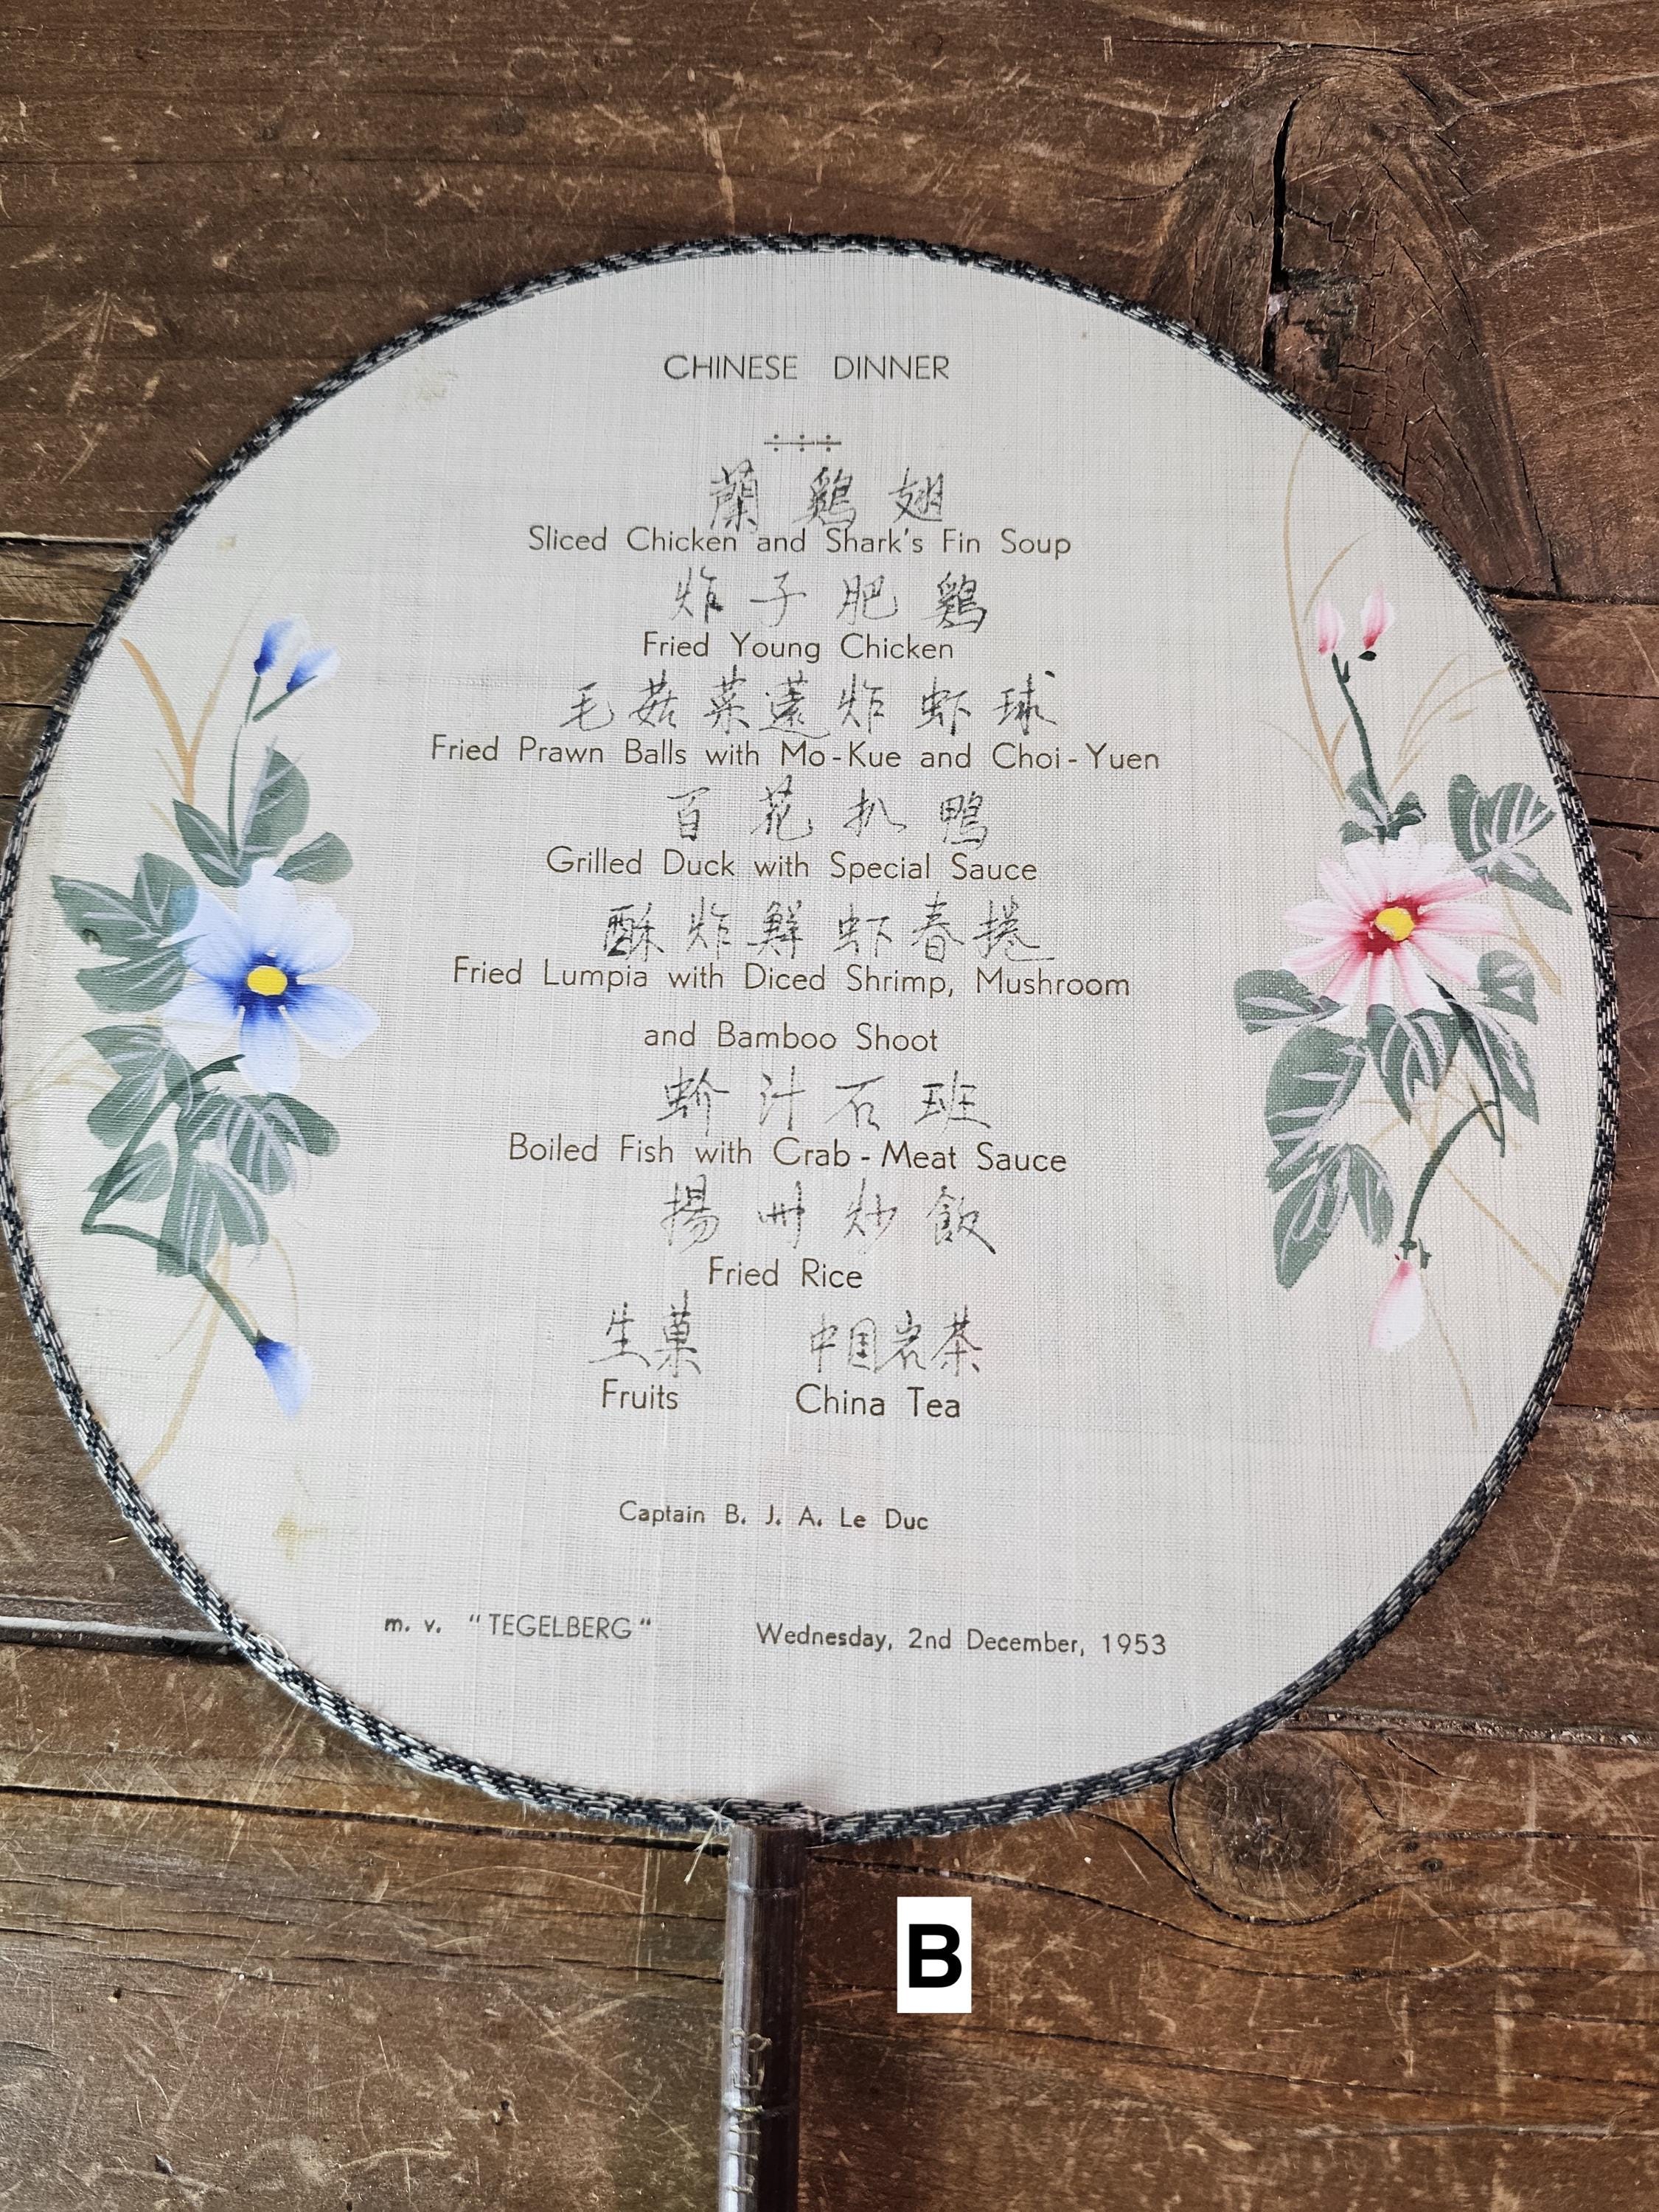 CHINESE DINNER
蘭鷄翅
Sliced Chicken and Shark's Fin Soup
炸子肥鷄
Fried Young Chicken
毛菇菜薳炸虾球
Fried Prawn Balls with Mo-Kue and Choi-Yuen
百花扒鴨
Grilled Duck with Special Sauce
酥炸鮮虾春捲
Fried Lumpia with Diced Shrimp, Mushroom
and Bamboo Shoot
蚧汁石班
Boiled Fish with Crab-Meat Sauce
揚州炒飯
Fried Rice
生菓 中国岩茶
Fruits China Tea
Captain B. J. A. Le Duc
m. v. "TEGELBERG" Wednesday, 2nd December, 1953
B